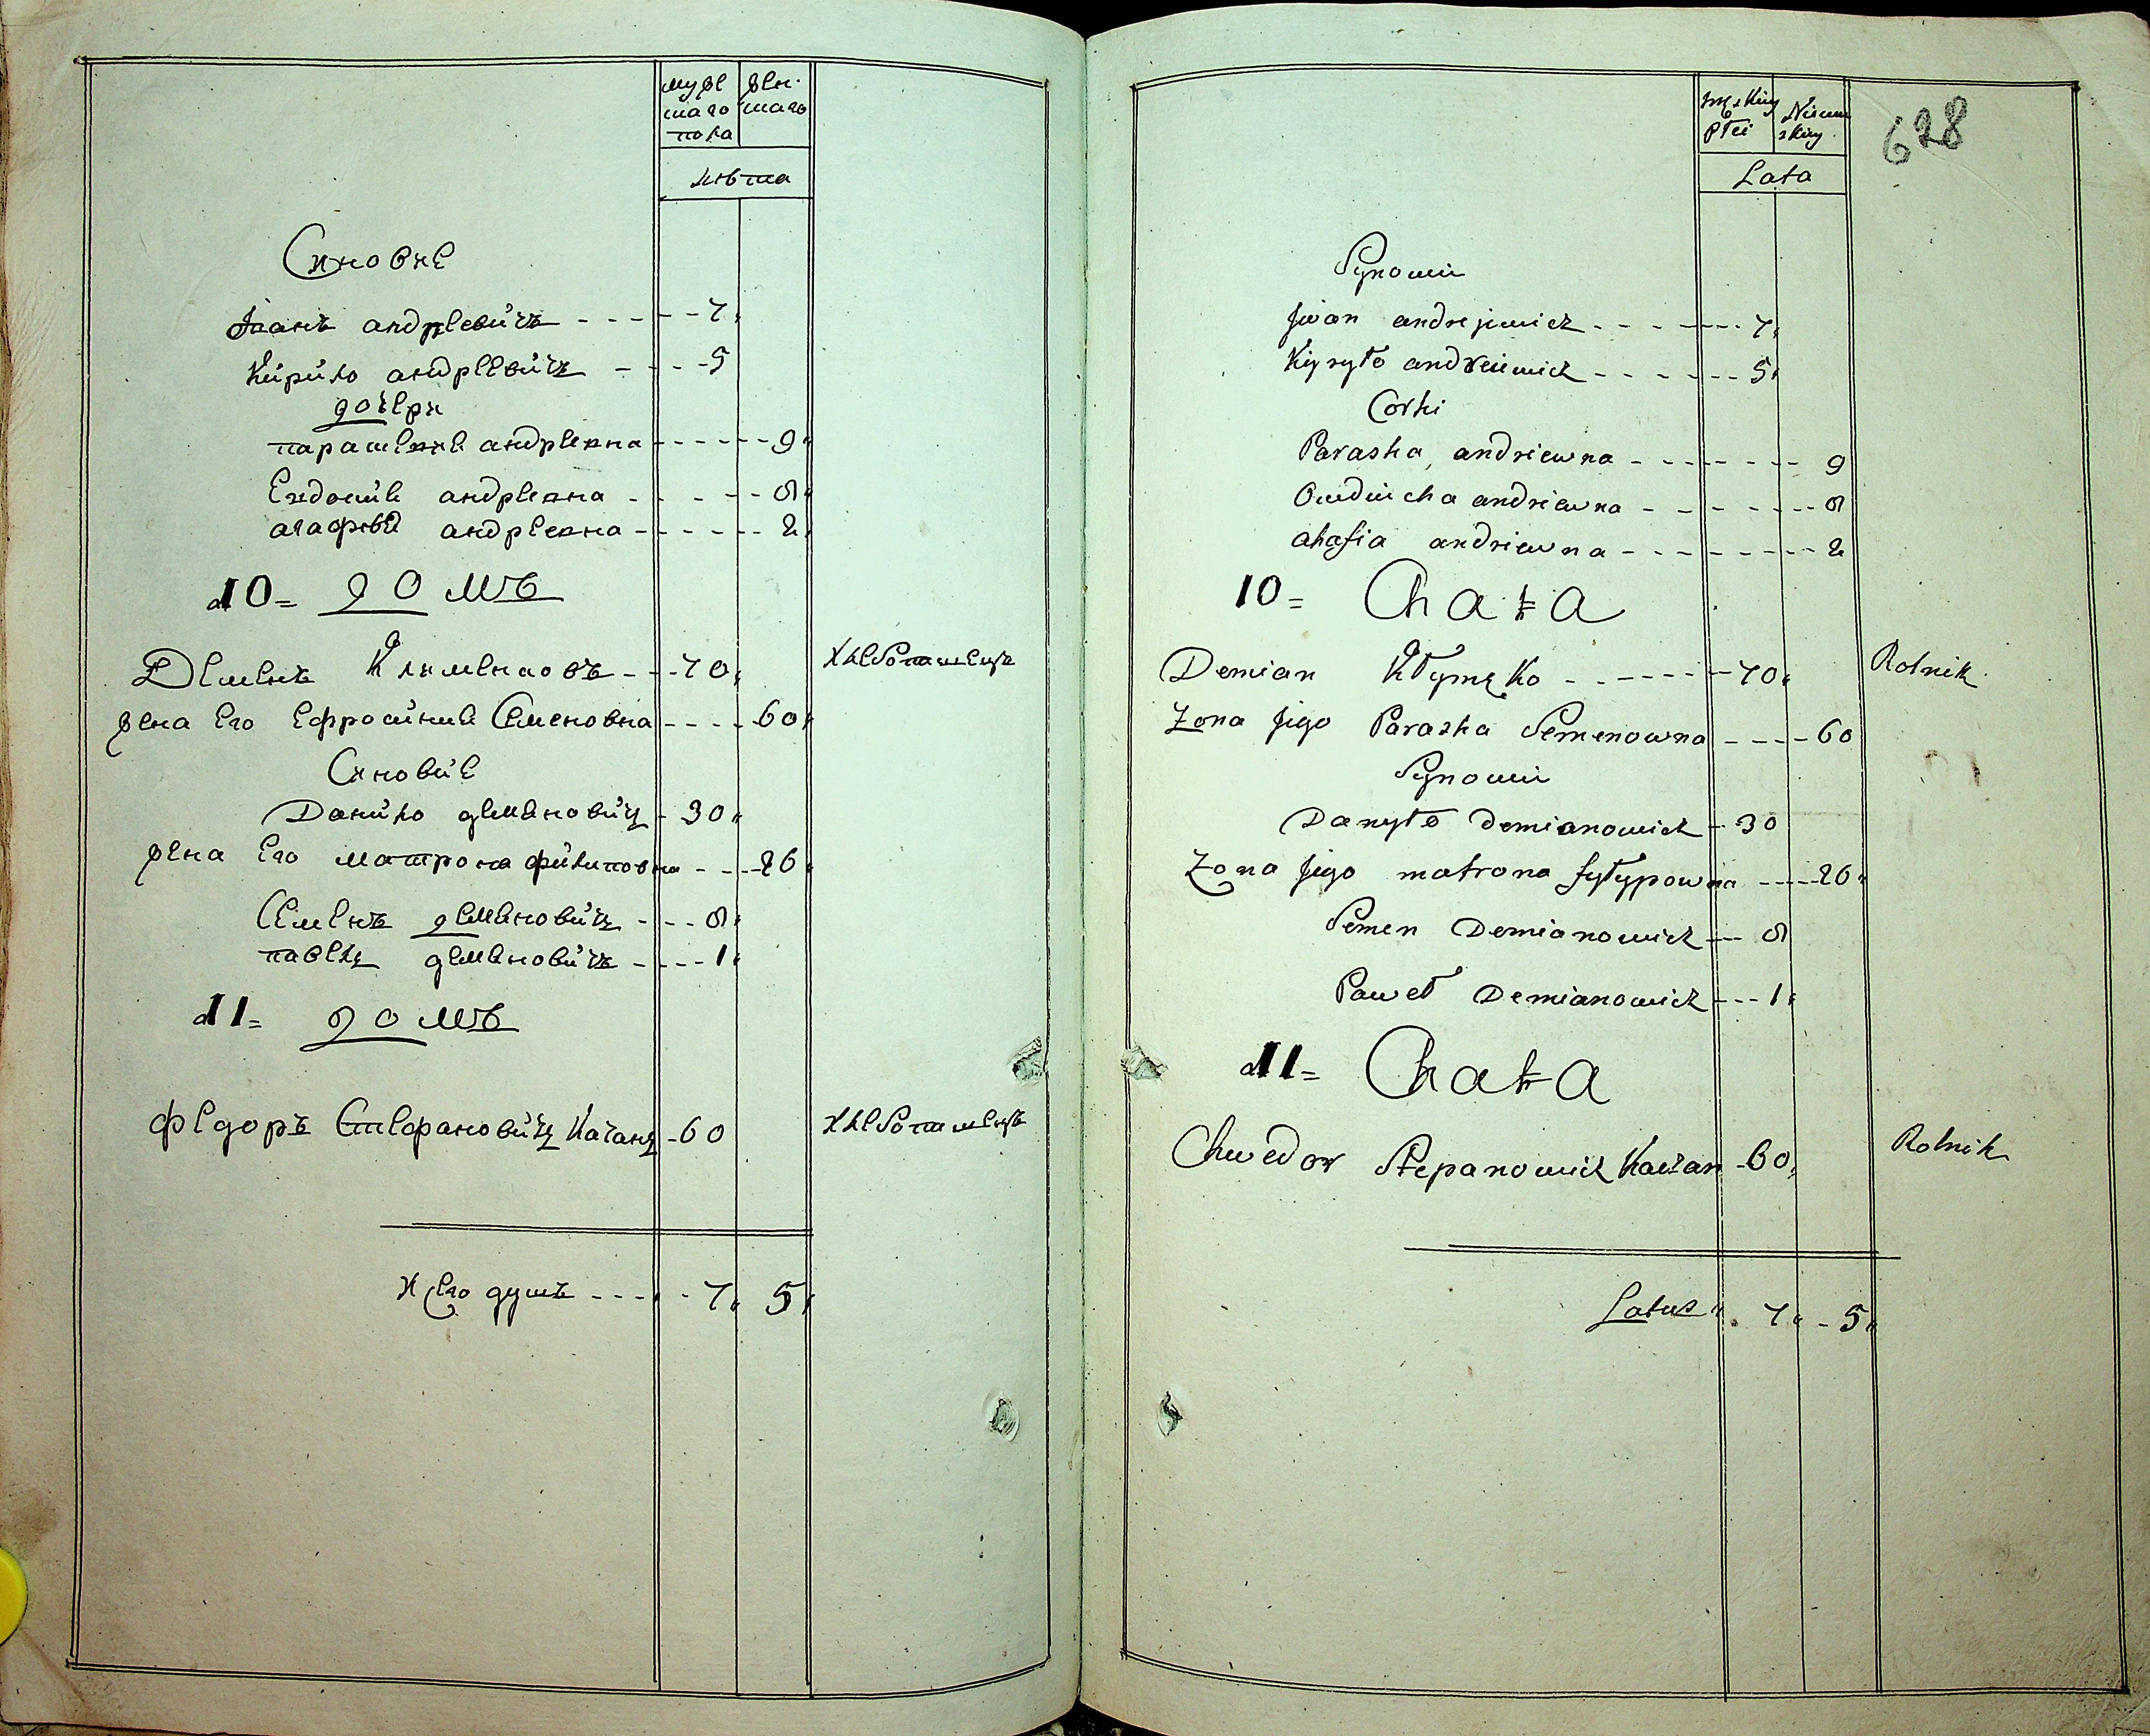 муже жен
шаго шаго
пола
лѣта
Сыновье
Іванъ андреевичъ - - - - - 7
Кирило андреевичъ - - - - 5
дочери
парасковие андреевна - - - - - 9
Евдокие андреевна - - - - - 8
агафие андреевна - - - - - 2
10 = домъ
Деменъ Клименковъ - - - 70 Хлебопашецъ
жена Его Ефросиние Семеновна - - - - 60
Сыновие
Данило деменовичъ - 30
жена Его матрона филиповна - - - 26
Семенъ деменовичъ - - - 8
павелъ деменовичъ - - - - 1
11 = домъ
Федоръ Стефановичъ Качанъ - 60 Хлебопашецъ
Всего душъ - - - - 7 5
628
męskiey Niewie
płci skiey
Lata
Synowie
Jwan andrejewicz - - - - - - - 7
Kyryło andreiewicz - - - - - - - 5
Corki
Paraska andriewna - - - - - - - 9
Owducha andriewna - - - - - - - 8
ahafia andriewna - - - - - - - - 2
10 = Chata
Demian Kłymęko - - - - - - - 70 Rolnik
Zona jego Paraska Semenowna - - - - 60
Synowie
Danyło Demianowicz - 30
Zona jego matrona fyłypowna - - - - 26
Semen Demianowicz - - - 8
Paweł Demianowicz - - - 1
11 = Chata
Chwedor Stepanowicz Kaczan - 60 Rolnik
Latus 7 - 5